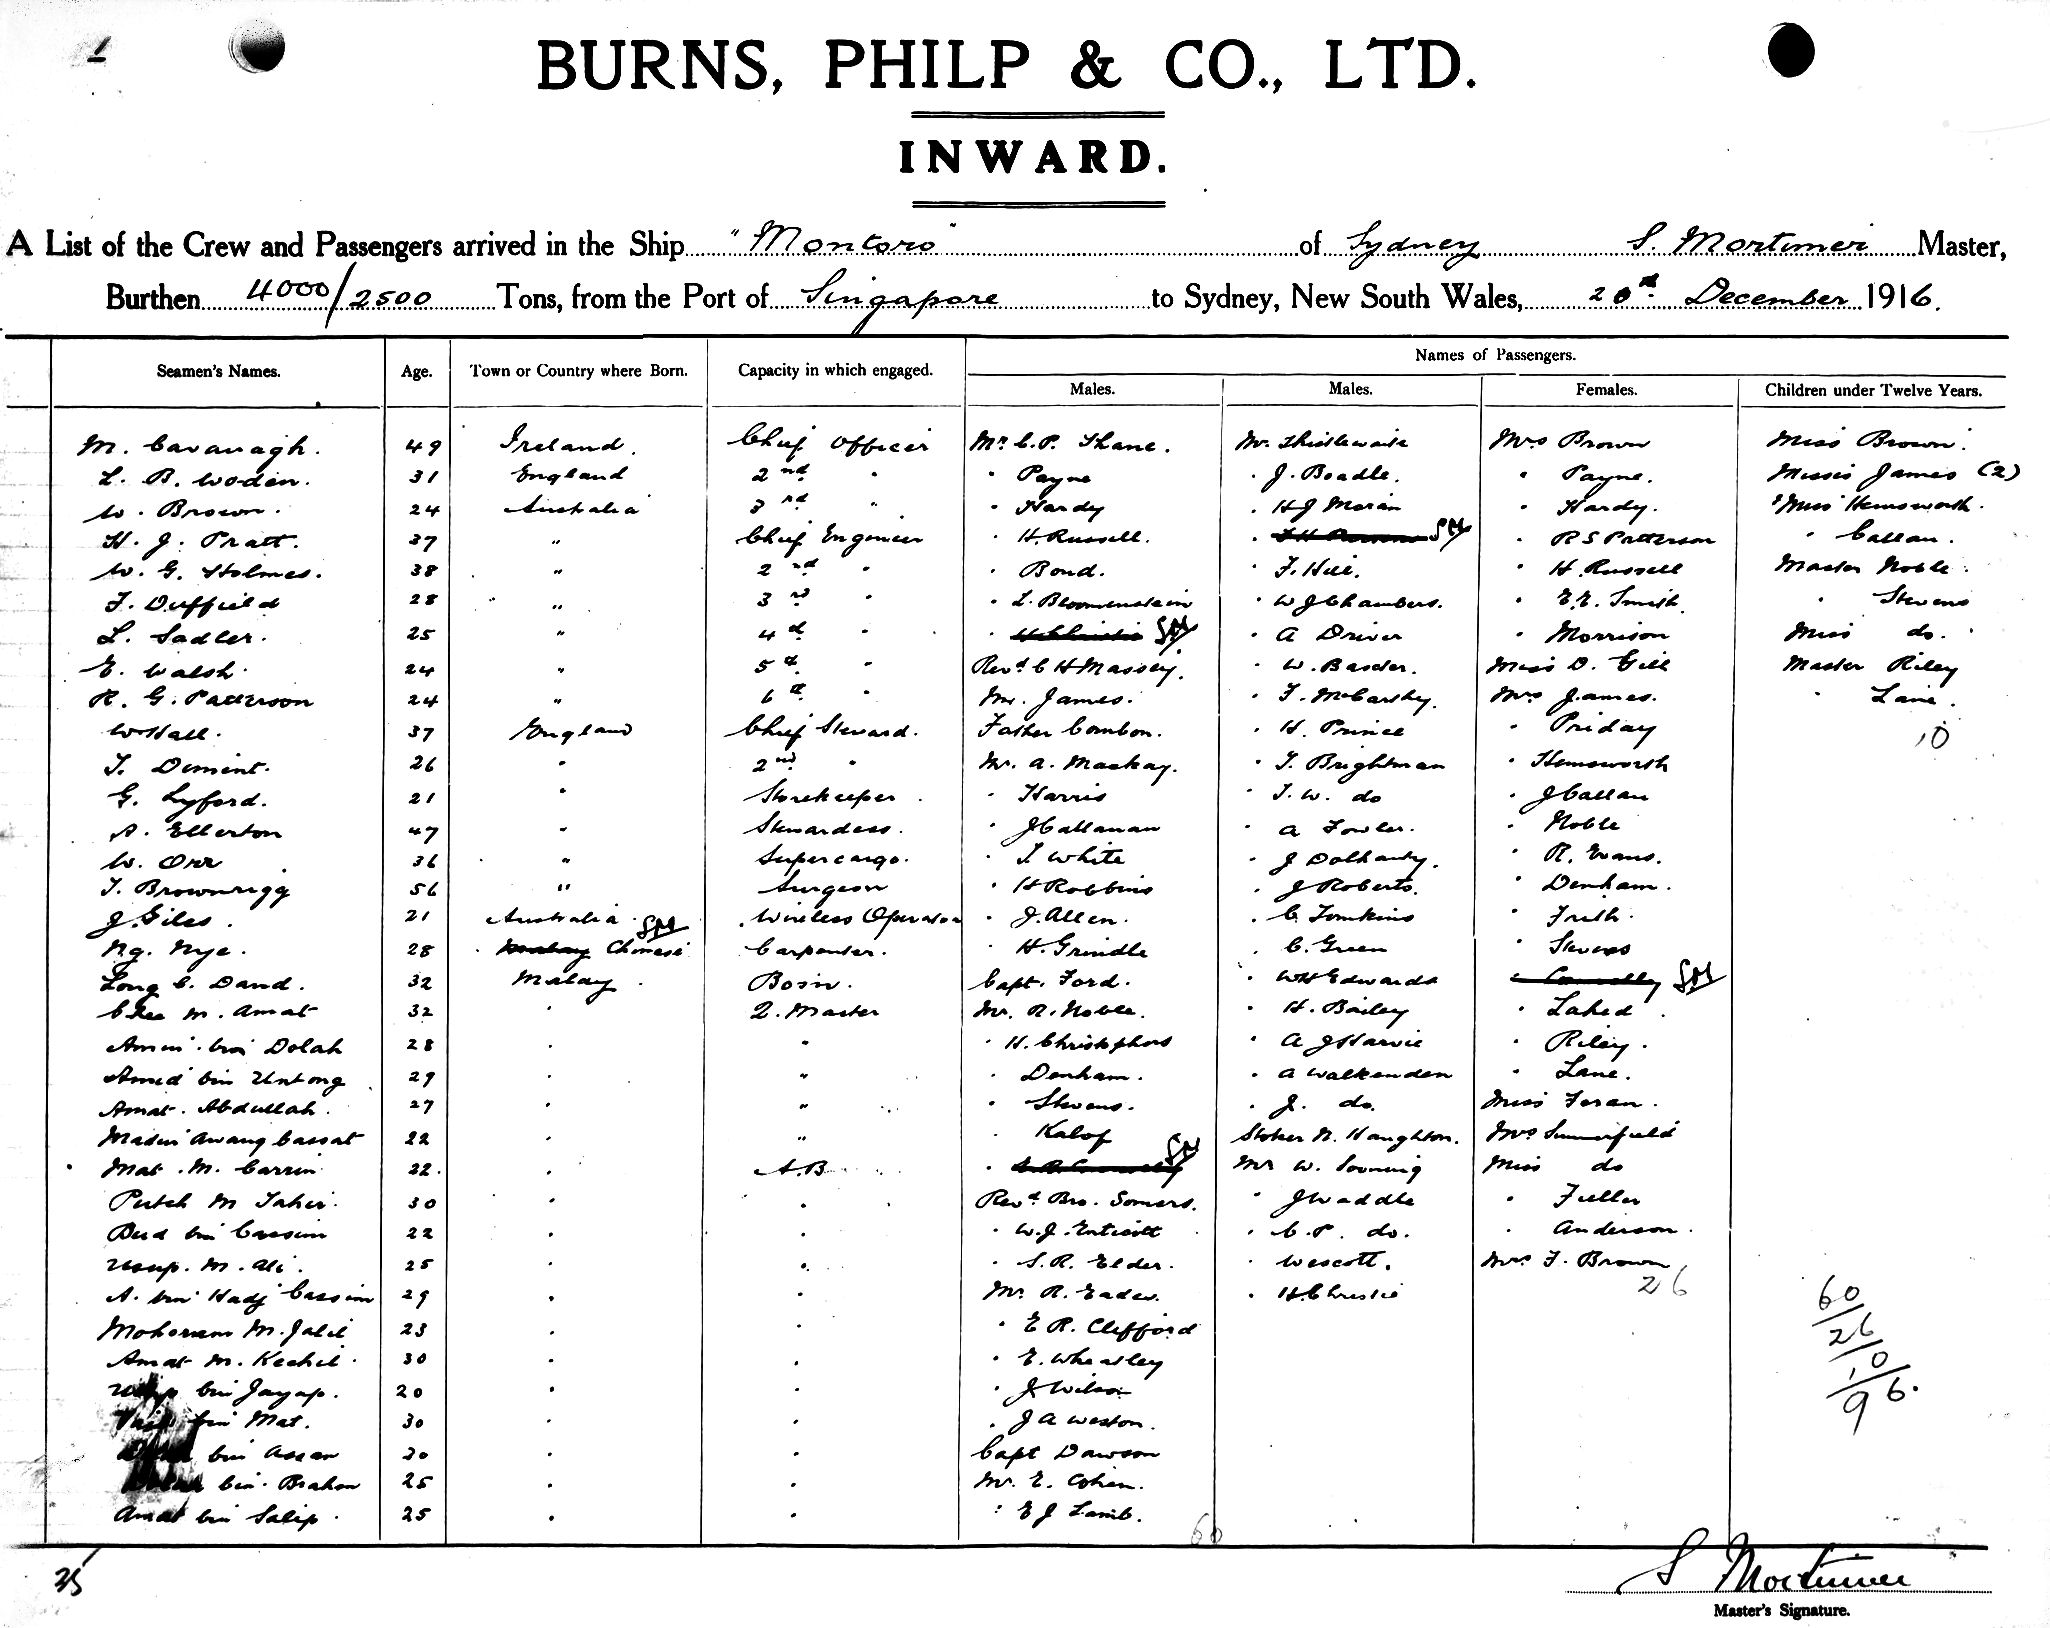 1
BURNS, PHILP & CO., LTD.
INWARD.
A List of the Crew and Passengers arrived in the Ship "Montoro" of Sydney S. Mortimer Master,
Burthen 4000/2500 Tons, from the Port of Singapore to Sydney, New South Wales, 20th December 1916.
Names of Passengers.
Seamen's Names. Age. Town or Country where Born. Capacity in which engaged. Males. Males. Females. Children under Twelve Years.
M. Cavanagh. 49 Ireland. Chief Officer Mr C.P. Thane. Mr. Thistlewaite Mrs Brown Miss Brown.
L. B. Woden. 31 England 2nd " " Payne " J. Beadle. " Payne. Misses James (2)
W. Brown. 24 Australia 3rd " " Hardy " H J Moran " Hardy. Miss Hemsworth.
H. J. Pratt. 37 " Chief Engineer " H. Russell. " SM " R S Patterson " Callan.
W. G. Holmes. 38 " 2nd " " Bond. " F. Hill. " H. Russell Master Noble.
F. Duffield 28 " 3rd " " L. Bloomenstein " W J Chambers. " E.E. Smith. " Stevens
L. Sadler. 25 " 4th " " H Christie SM " A Driver " Morrison Miss do.
E. Walsh. 24 " 5th " Revd C H Massey. " W. Basder. Miss D. Gill Master Riley
R. G. Patterson 24 " 6th " Mr. James. " F. McCarthy. Mrs James. " Lane.
W Hall. 37 England Chief Steward. Father Combon. " H. Prince " Priday 10
T. Diment. 26 " 2nd " Mr. A. Mackay. " T. Brightman " Hemsworth
G. Lyford. 21 " Storekeeper " Harris " T. W. do " J Callan
A. Ellerton 47 " Stewardess. " J Callanan " A Fowler. " Noble
W. Orr 36 " Supercargo. " T White " J Dolhanty. " R. Evans.
T. Brownrigg 56 " Surgeon " H Robbins " J Roberts. " Denham.
J. Giles. 21 Australia. Wireless Operator " J. Allen. " C. Tomkins " Frith.
Ng. Nye. 28 Malay Chinese SM Carpenter. " H. Grindle " C. Green " Stevens
Long C. Daud. 32 Malay. Bosin. Capt. Ford. " W H Edwards " Connelly SM
Chee M. Amat 32 " Q. Master Mr. R. Noble. " H. Bailey " Lahed
Amin bin Dolah 28 " " " H. Christophers " A J Harvie " Riley.
Amid bin Untong 29 " " " Denham. " A Walkenden " Lane.
Amat. Abdullah. 27 " " " Stevens. " J. do. Miss Foran.
Masin Awang Cassat 22 " " " Kalof Stoker N. Haughton. Mrs Summerfield
Mat. M. Carrim 22. " A.B. " SM Mr W. Sooning Miss do
Puteh M Tahir. 30 " " Revd Bro. Somers. " J Waddle " Fuller
Bud bin Cassim 22 " " " W.J. Enticott " C. P. do. " Anderson.
Usup. M. Ali. 25 " " " S. R. Elder. " Wescott. Mrs F. Brown
A. bin Hadj Cassim 29 " " Mr. R. Eades. " H. Christie 26
Mohoriam M. Jalil 23 " " " E R. Clifford
Amat M. Kechil. 30 " " " E. Wheatley
bin Jayap. 20 " " " J Wilson
bin Mat. 30 " " " J A Weston.
bin Assan 20 " " Capt Dawson
bin Brahom 25 " " Mr. E. Cohen.
Amat bin Salip. 25 " " " E J Lamb.
60
60/26/10/96.
35
S Mortimer
Master's Signature.